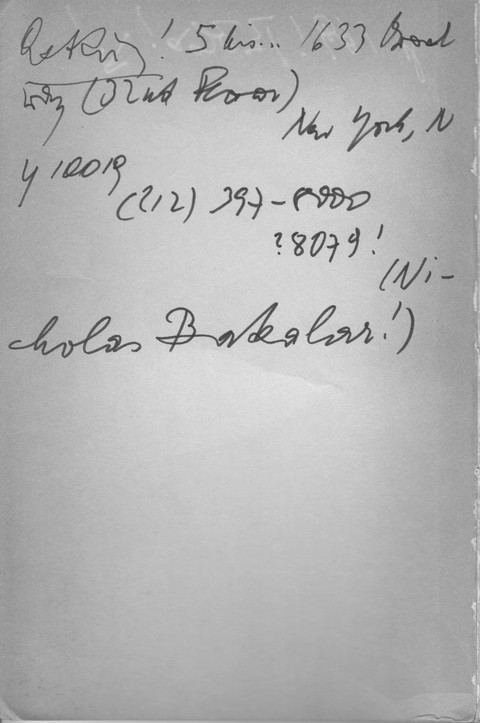 ! 5 bis... 1633 Broad
way (32nd Floor)
New York, N
y 10019
(212) 397-8000
? 8079!
(Ni-
cholas Bakalar!)